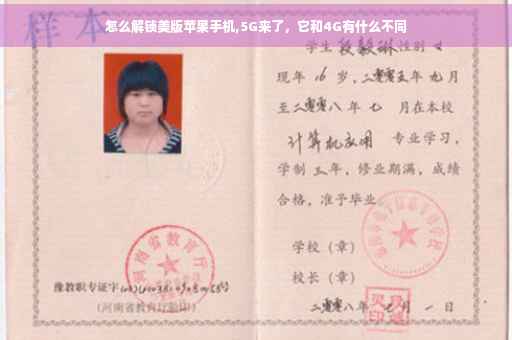 怎么解锁美版苹果手机,5G来了，它和4G有什么不同
样本
学生段毅琳性别女
现年16岁,二零零五年九月
至二零零八年七月在本校
计算机应用 专业学习，
学制三年，修业期满，成绩
合格，准予毕业
学校（章）
校长（章）
二零零八年七月一日
河南省教育厅
豫教职专证字
(河南省教育厅验印)